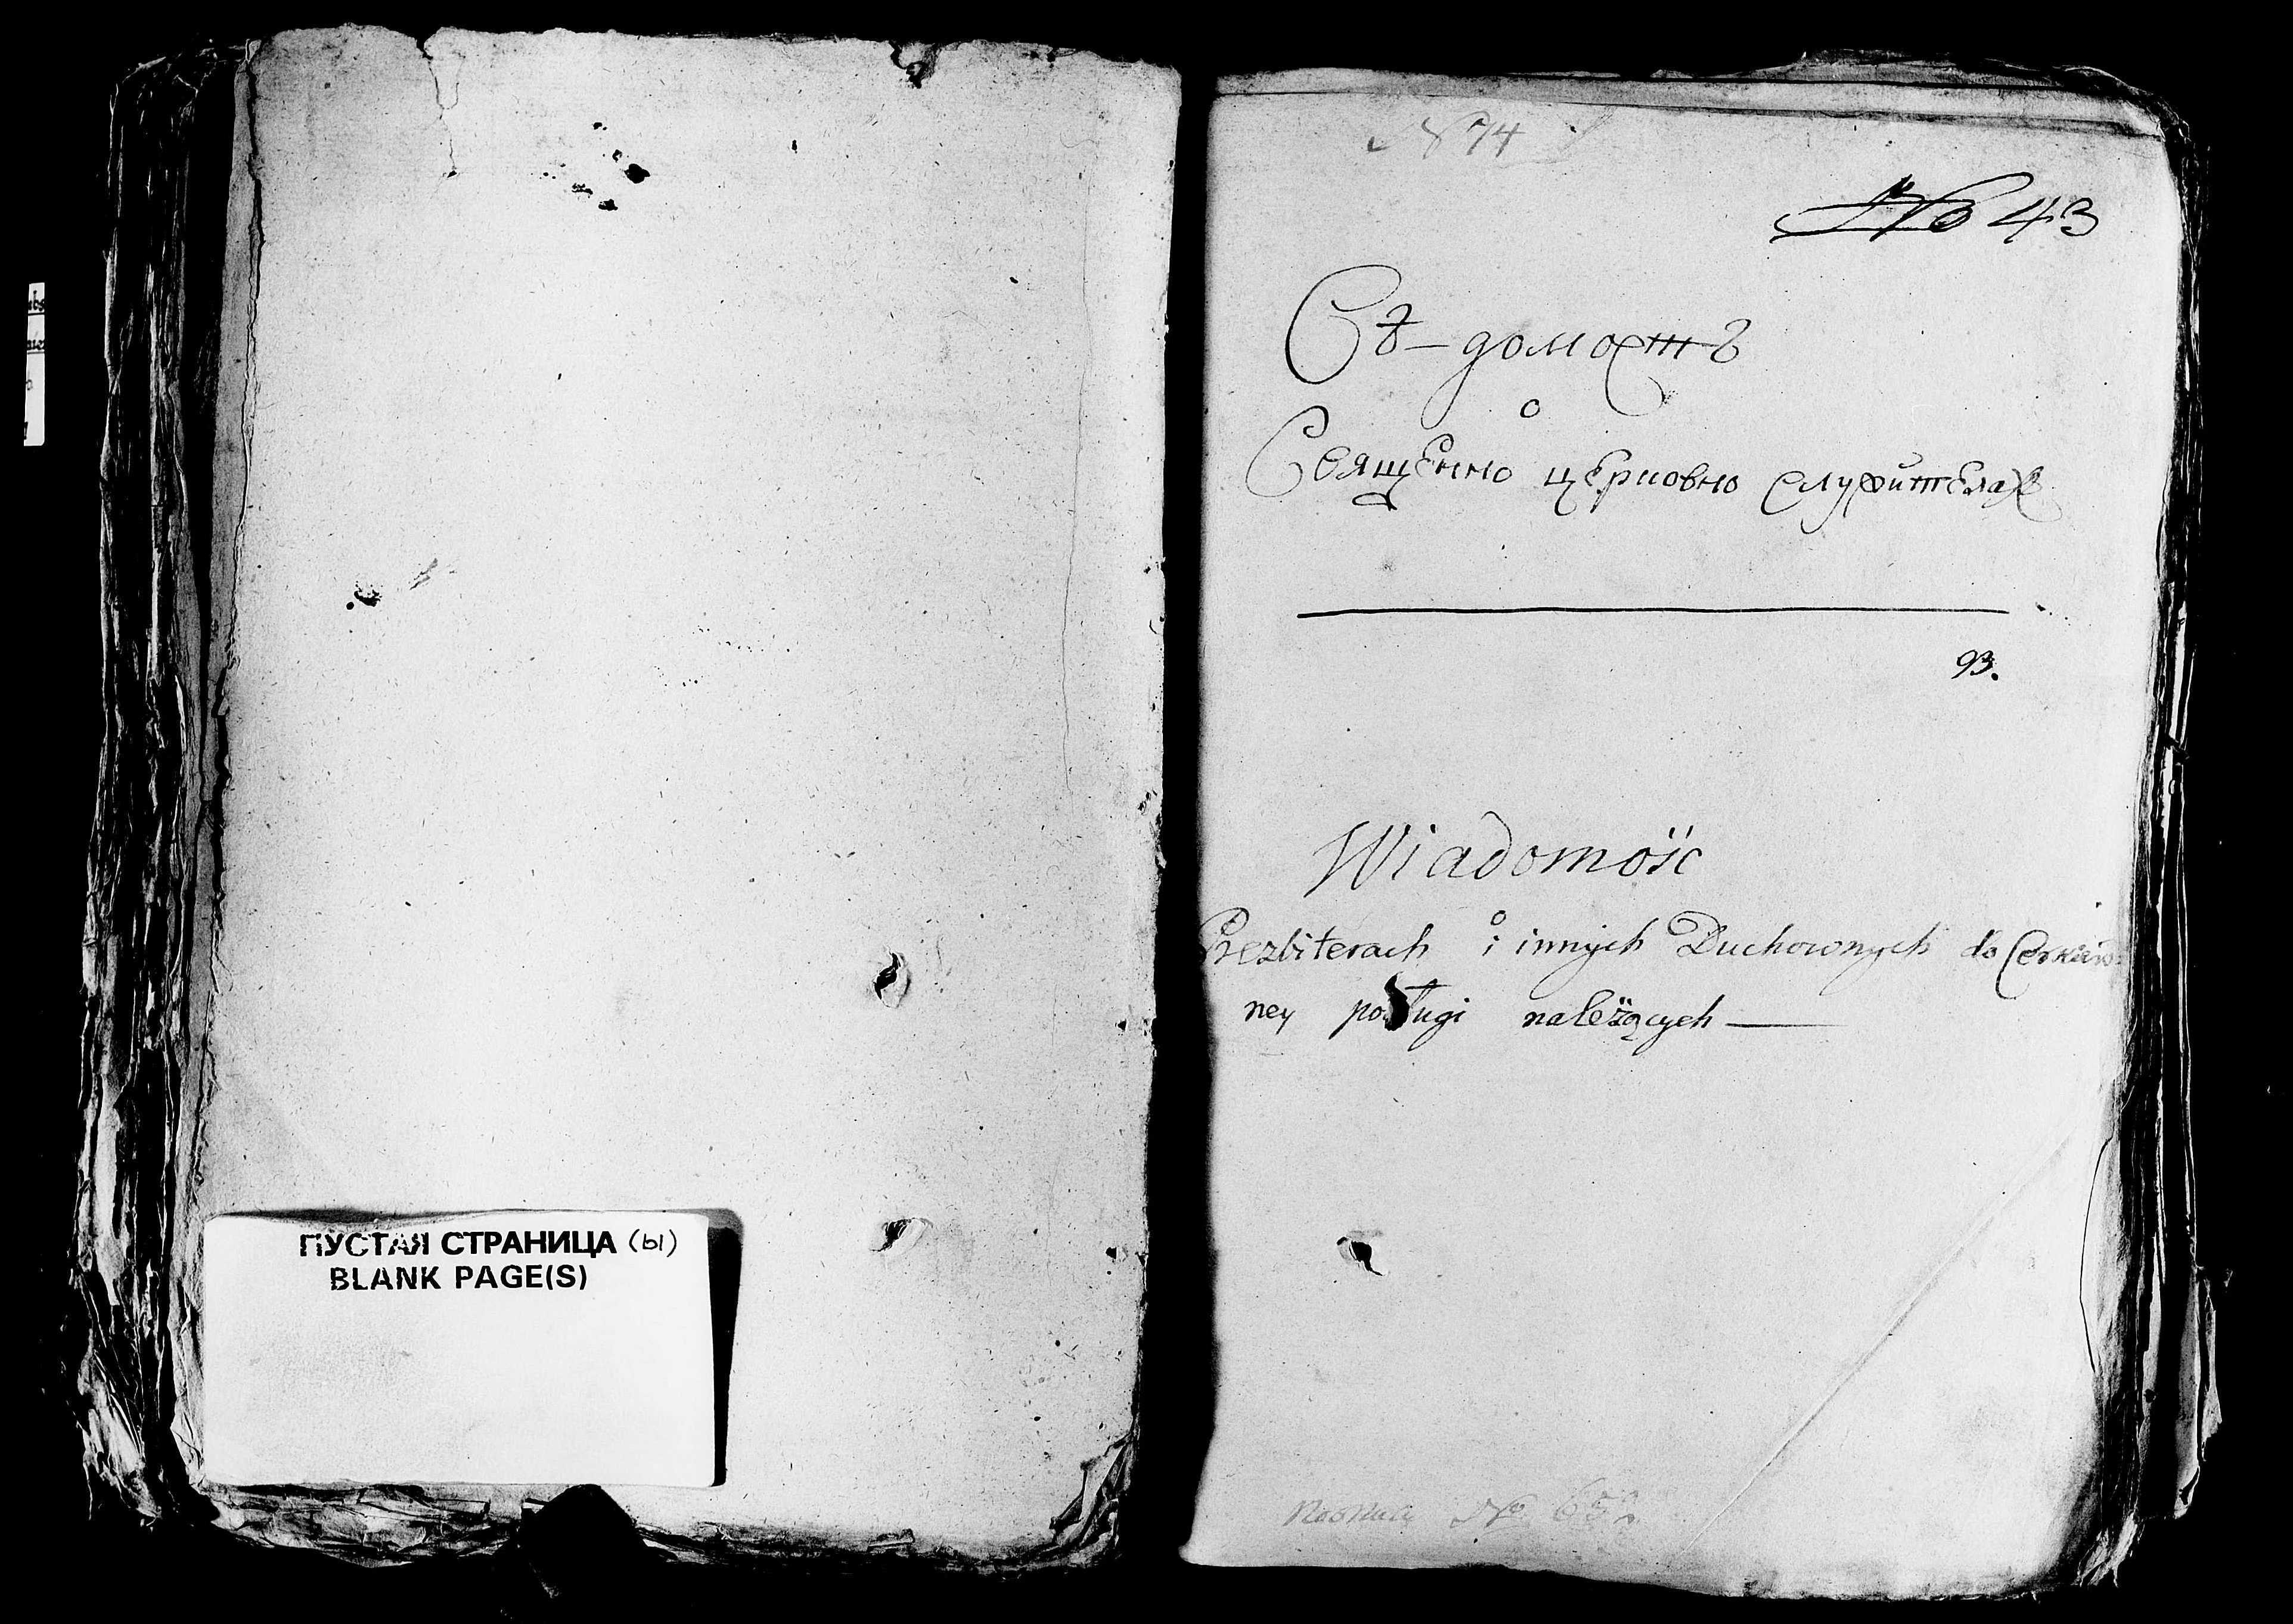 ПУСТАЯ СТРАНИЦА (ы)
BLANK PAGE(S)
№ 74
№ 43
Вѣ-домость
о
Священно церковно служителахъ
93.
Wiadomość
o
Prezbiterach i innych Duchownych do Cerkiew=
ney posługi należących —
№